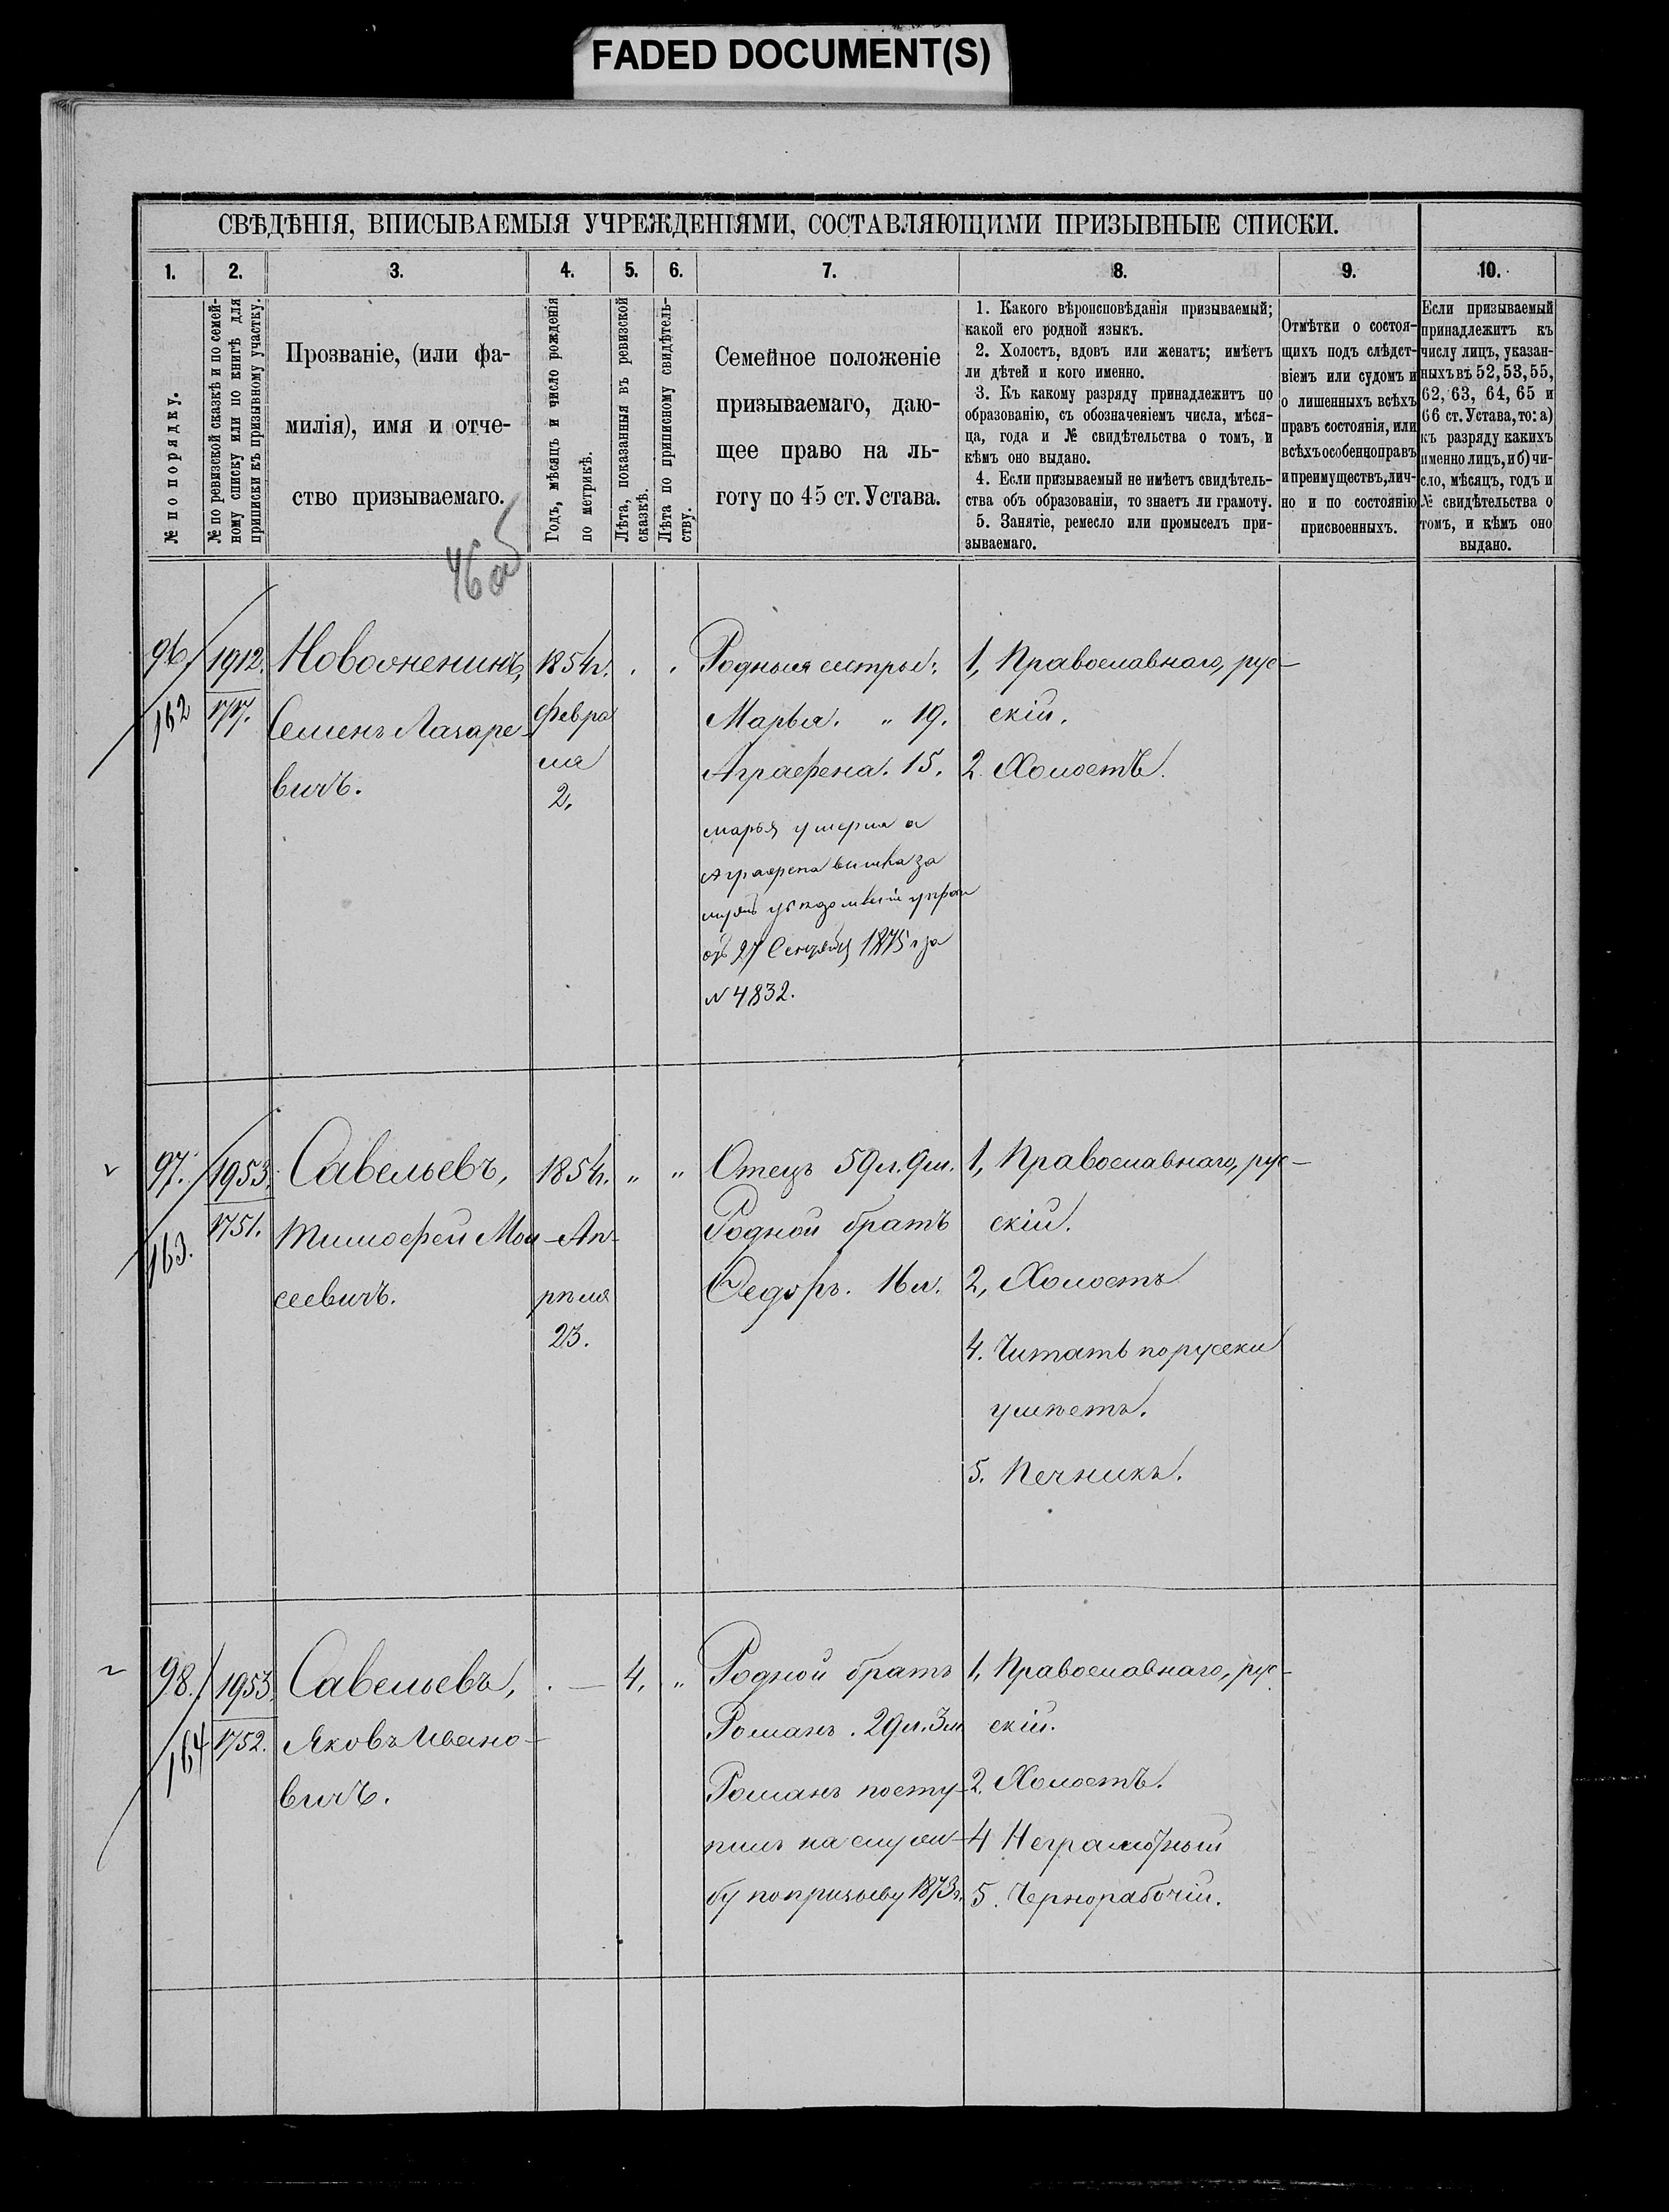 FADED DOCUMENT(S)
СВѢДѢНІЯ, ВПИСЫВАЕМЫЯ УЧРЕЖДЕНІЯМИ, СОСТАВЛЯЮЩИМИ ПРИЗЫВНЫЕ СПИСКИ.
1.
2.
3.
4.
5.
6.
7.
8.
9.
10.
№ по порядку.
№ по ревизской сказкѣ и по семей-
ному списку или по книгѣ для
приписки къ призывному участку.
Прозваніе, (или фа-
милія), имя и отче-
ство призываемаго.
Годъ, мѣсяцъ и число рожденія
по метрикѣ.
Лѣта, показанныя въ ревизской
сказкѣ.
Лѣта по приписному свидѣтель-
ству.
Семейное положеніе
призываемаго, даю-
щее право на ль-
готу по 45 ст. Устава.
1. Какого вѣроисповѣданія призываемый;
какой его родной языкъ.
2. Холостъ, вдовъ или женатъ; имѣетъ
ли дѣтей и кого именно.
3. Къ какому разряду принадлежитъ по
образованію, съ обозначеніемъ числа, мѣся-
ца, года и № свидѣтельства о томъ, и
кѣмъ оно выдано.
4. Если призываемый не имѣетъ свидѣтель-
ства объ образованіи, то знаетъ ли грамоту.
5. Занятіе, ремесло или промыселъ при-
зываемаго.
Отмѣтки о состоя-
щихъ подъ слѣдст-
віемъ или судомъ и
о лишенныхъ всѣхъ
правъ состоянія, или
всѣхъ особенно правъ
и преимуществъ, лич-
но и по состоянію
присвоенныхъ.
Если призываемый
принадлежитъ къ
числу лицъ, указан-
ныхъ въ 52, 53, 55,
62, 63, 64, 65 и
66 ст. Устава, то: а)
къ разряду какихъ
именно лицъ, и б) чи-
сло, мѣсяцъ, годъ и
№ свидѣтельства о
томъ, и кѣмъ оно
выдано.
46 об
96
162
1912.
Семенъ Лазаре-
вичъ.
1854г.
Февра
ля
2.
Родныя сестры:
Марья. " 19.
Аграфена. 15.
марья умерла а
Аграфена вышла за
мужъ
отъ 27 Сентября 1875 г за
№ 4832.
1, Православнаго, рус-
скій.
2. Холостъ.
97.
163.
1953.
1751.
Савельевъ,
Тимофей Мои-
сеевичъ.
1854г.
Ап-
рѣля
23.
" "
Отецъ 59 л. 9 м.
Родной братъ
Федоръ. 16 л.
1, Православнаго, рус-
скій.
2, Холостъ
4. Читать по русски
умѣетъ.
5. Печникъ.
98.
164
1953.
1752.
Савельевъ,
Яковъ Ивано-
вичъ.
. — 4. "
Родной братъ
Романъ. 29 л. 3 м
Романъ посту-
пилъ на служ-
бу по призыву 1873г.
1, Православнаго, рус-
скій.
2. Холостъ.
4 Неграмотный
5. Чернорабочій.